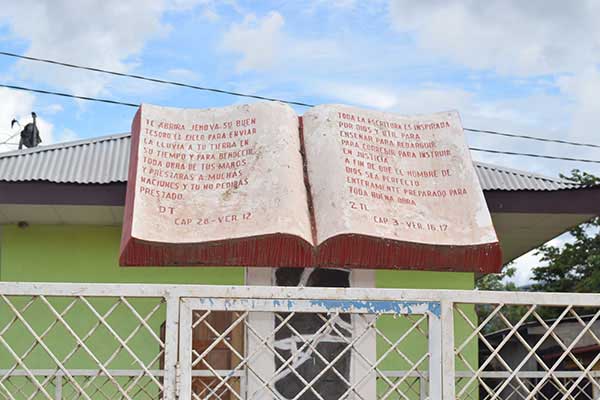 TE ABRIRA JEHOVA SU BUEN
TESORO EL CIELO PARA ENVIAR
LA LLUVIA A TU TIERRA EN
SU TIEMPO Y PARA BENDECIR
TODA OBRA DE TUS MANOS.
Y PRESTARAS A MUCHAS
NACIONES Y TU NO PEDIRAS
PRESTADO.
DT
CAP 28-VER. 12
TODA LA ESCRITURA ES INSPIRADA
POR DIOS Y UTIL PARA
ENSEÑAR PARA REDARGUIR
PARA CORREGIR PARA INSTRUIR
EN JUSTICIA,
A FIN DE QUE EL HOMBRE DE
DIOS SEA PERFECTO
ENTERAMENTE PREPARADO PARA
TODA BUENA OBRA
2. TI.
CAP. 3-VER. 16, 17